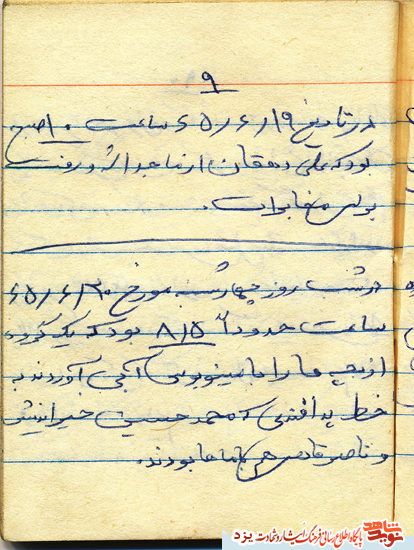 ۹
در تاریخ ۶۵/۶/۱۹ ساعت ۱۰ صبح
بود که علی دهقان از ما جدا شد و رفت
برای مخابرات.
در شب روز چهارشنبه مورخ ۶۵/۶/۲۰
ساعت حدوداً ۸/۵ بود که یک گروه
از بچه ها را با مینی بوس آوردند به
خط پدافندی که محمد حسین
و ناصر با ما بودند.
نوید شاهد
پایگاه اطلاع رسانی فرهنگ ایثار و شهادت یزد